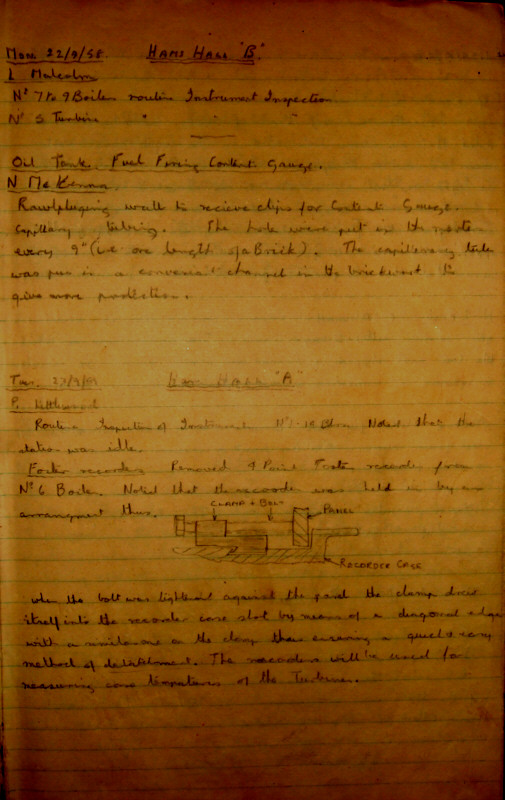 Mon. 22/9/58 HAMS HALL "B"
L Malcolm
Nº 7 to 9 Boiler routine Instrument Inspection
Nº 5 Turbine " " "
Oil Tank Fuel Firing Content Gauge.
N McKenna.
Rawlpluging wall to recieve clips for Content Gauge.
Capillary tubing. The hole were put in the mortar
every 9" (i.e. one length of a Brick). The capillary tube
was put in a convenient channel in the brickwork to
give more protection.
Tues. HAMS HALL "A"
P.
Routine Inspection of Instruments Nº 1-18 Blrs. Noted that the
station was idle.
Foster recorder Removed 4 Point Foster recorder from
Nº 6 Boiler. Noted that the recorder was held in by an
arrangment thus.
CLAMP + BOLT
PANEL
RECORDER CASE
when the bolt was tightened against the panel the clamp drew
itself into the recorder case slot by means of a diagonal edge
with a similar one on the clamp thus ensuring a quick & easy
method of detatchment. The recorders will be used for
measuring cone tempatures of the Turbines.